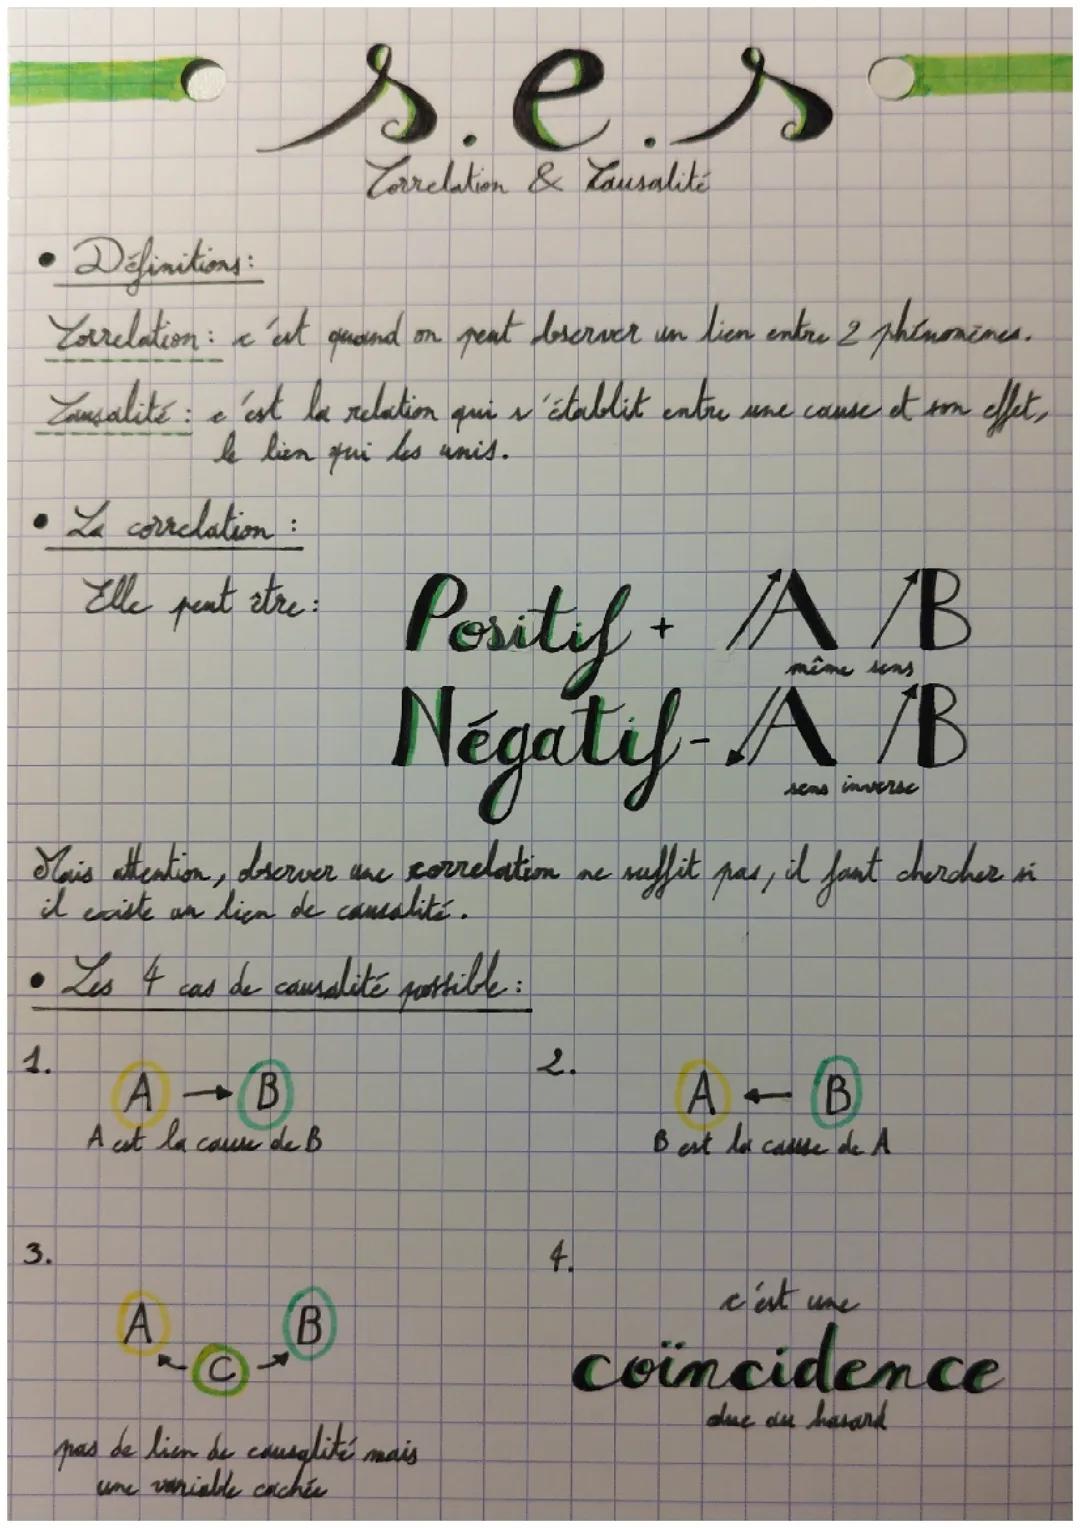 s.e.s
Correlation & Causalité
• Définitions:
Correlation: c'est quand on peut observer un lien entre 2 phénomènes.
Causalité: c'est la relation qui s'établit entre une cause et son effet,
le lien qui les unis.
• La correlation:
Elle peut être:
Positif + A B
même sens
Négatif - A B
sens inverse
Mais attention, observer une correlation ne suffit pas, il faut chercher si
il existe un lien de causalité.
• Les 4 cas de causalité possible:
1.
A → B
A est la cause de B
2.
A ← B
B est la cause de A
3.
A B
C
pas de lien de causalité mais
une variable cachée
4.
c'est une
coïncidence
due au hasard